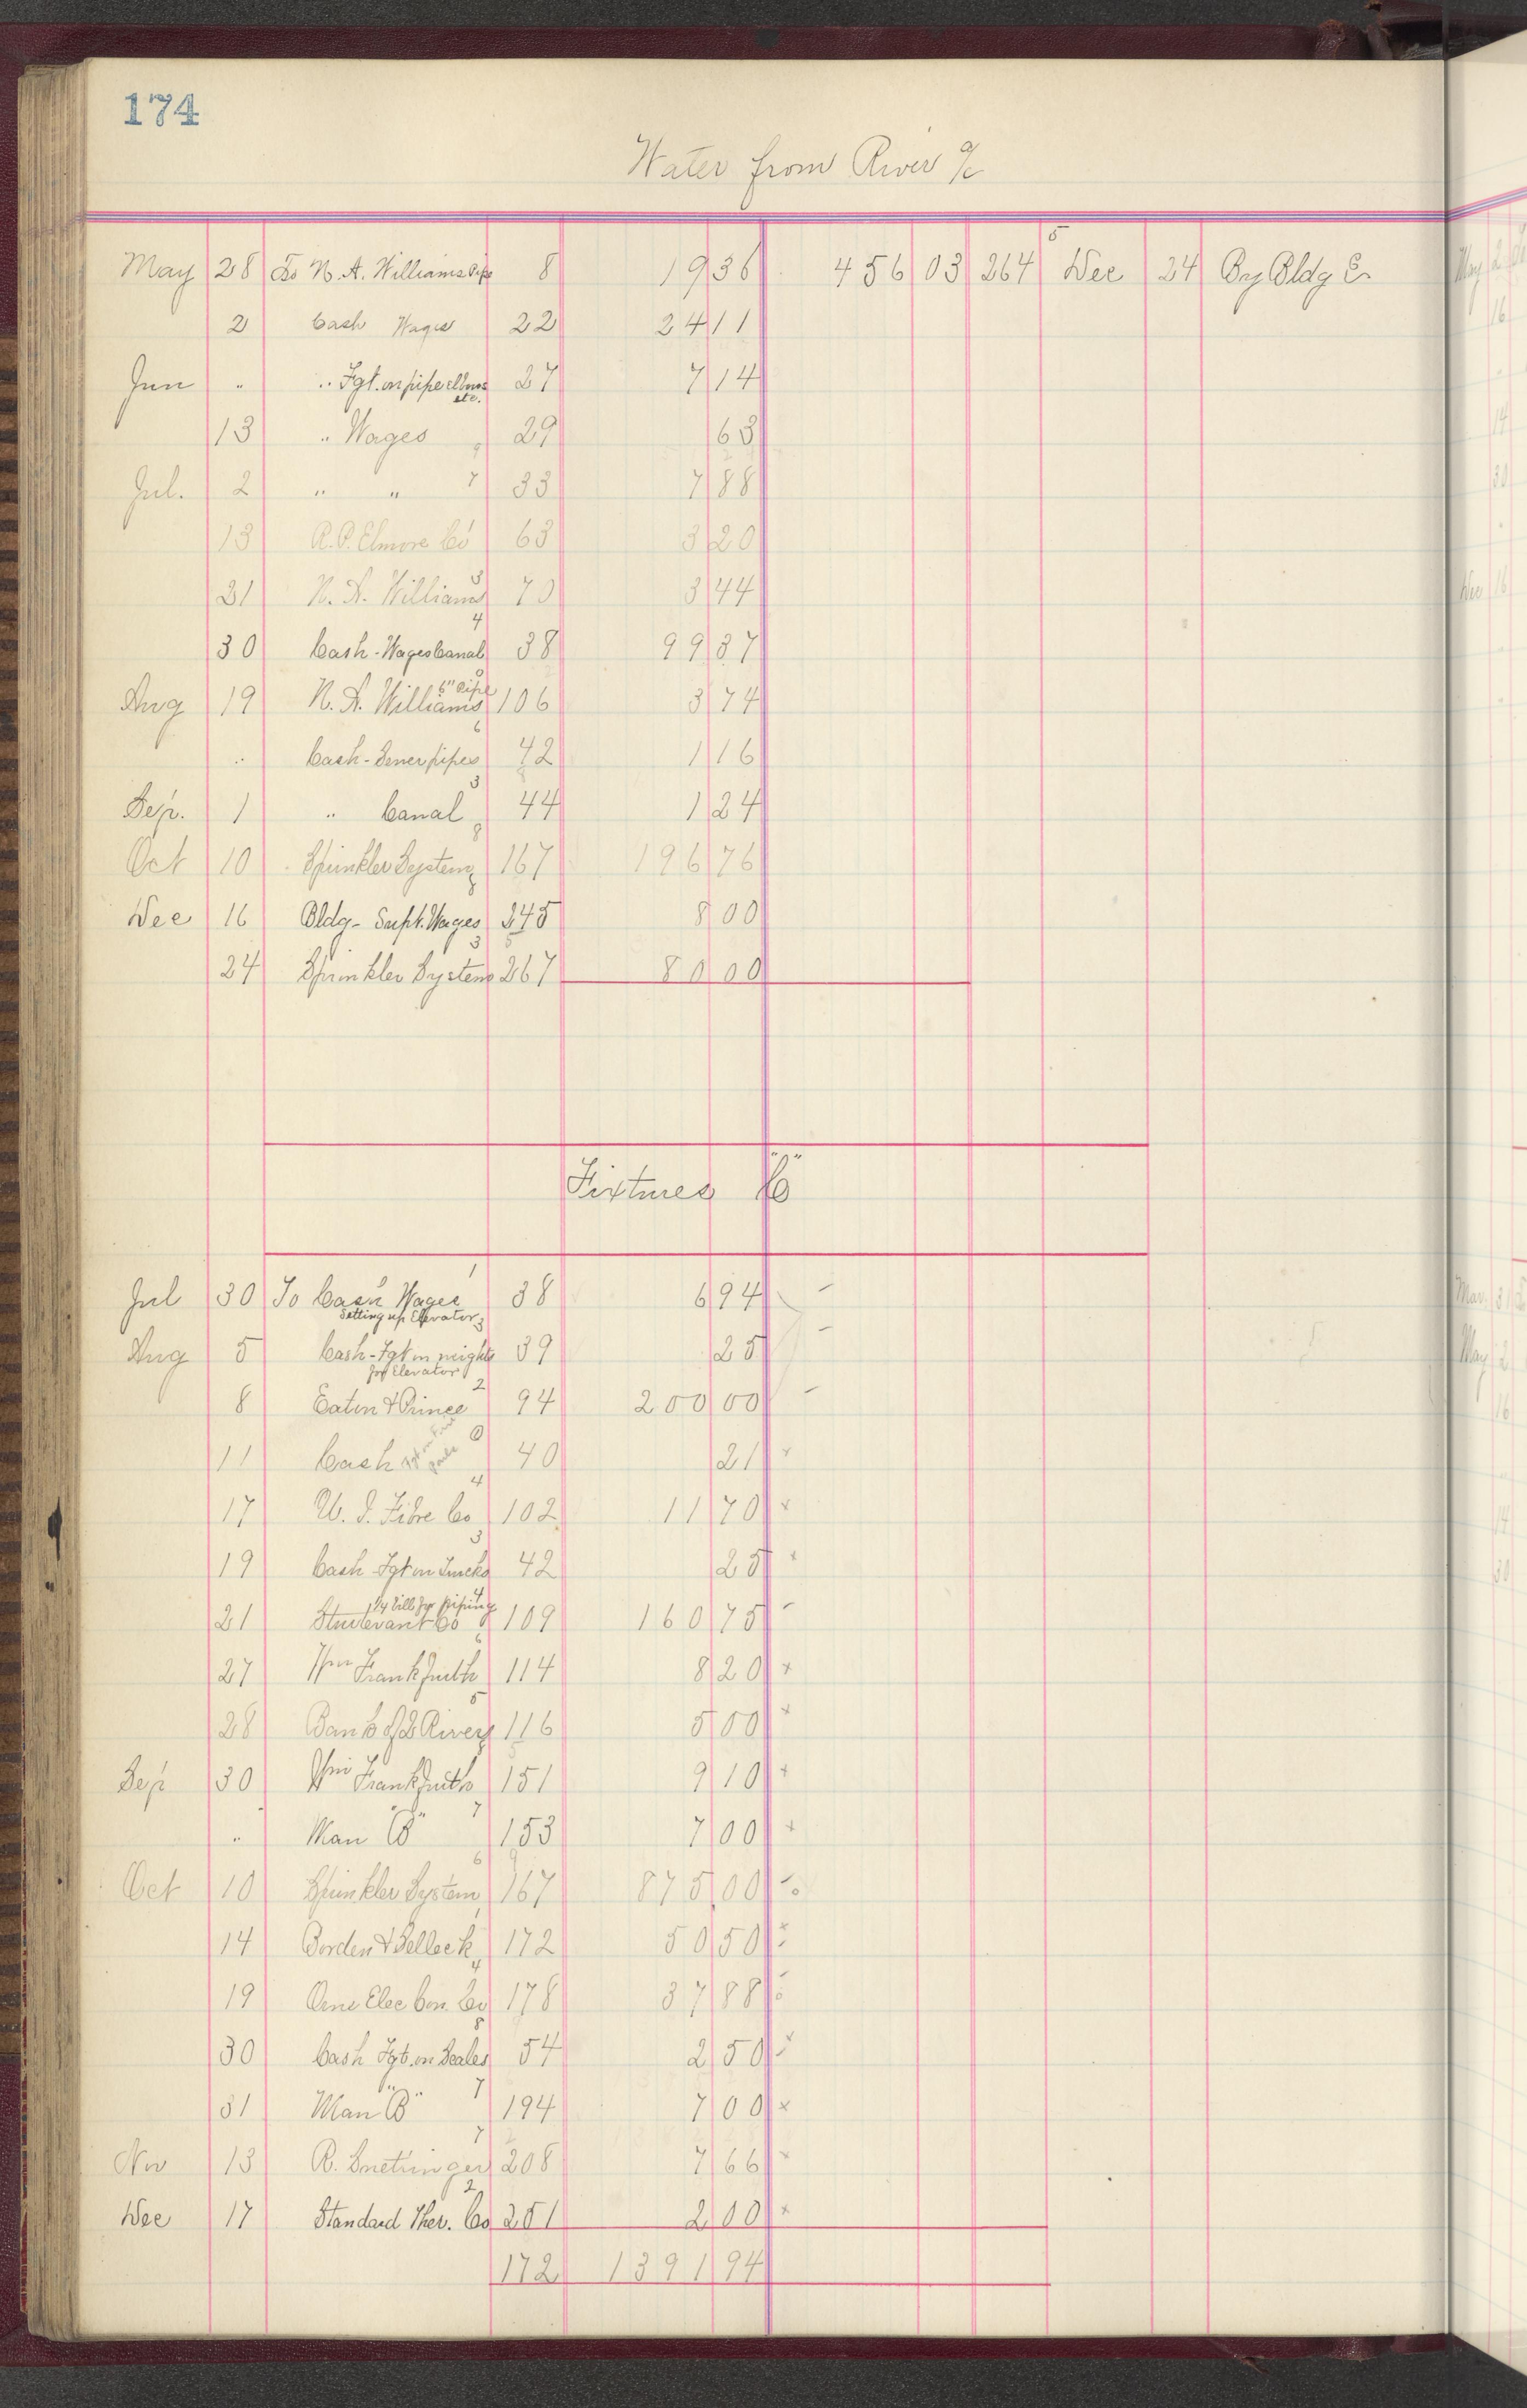 174
Water from River a/c
May 28 To N. A. Williams Pipe 8 19 36 456 03 264 5 Dec 24 By Bldg C
2 Cash Wages 22 24 11
Jun " " Fgt. on pipe elbows etc. 27 7 14
13 " Wages 29 63
Jul. 2 " " 7 33 7 88
13 R. P. Elmore Co 63 3 20
21 N. A. Williams 3 70 3 44
30 Cash - Wages Canal 4 38 99 37
Aug 19 N. A. Williams 6" Pipe 106 3 74
" Cash - Sewer pipes 42 1 16
Sep. 1 " Canal 3 44 1 24
Oct 10 Sprinkler System 167 196 76
Dec 16 Bldg - Supt. Wages 245 8 00
24 Sprinkler System 3 267 80 00
Fixtures "C"
Jul 30 To Cash Wages 1 38 6 94
Setting up Elevator
Aug 5 Cash - Fgt on weights 39 25
for Elevator
8 Eaton & Prince 2 94 200 00
11 Cash 40 21
17 U. S. Fibre Co 4 102 11 70
19 Cash Fgt on Trucks 3 42 25
21 Sturtevant Co 1/4 bill for piping 109 160 75
27 Wm Frankfurth 114 8 20
28 Bank of 2 Rivers 5 116 5 00
Sep 30 Wm Frankfurth 151 9 10
" Man "B" 7 153 7 00
Oct 10 Sprinkler System 6 167 875 00
14 Borden & Selleck 172 50 50
19 Elec Con. Co 178 37 88
30 Cash Fgt. on Scales 8 54 2 50
31 Man "B" 7 194 7 00
Nov 13 R. 7 208 7 66
Dec 17 Standard Ther. Co 2 251 2 00
172 1391 94